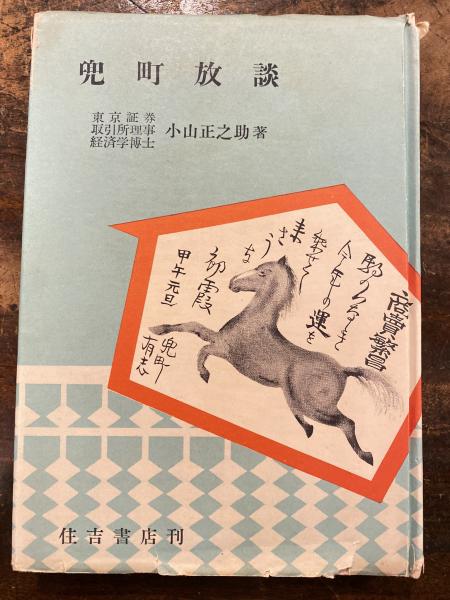 兜町放談
東京証券
取引所理事
経済学博士
小山正之助著
商賣繁昌
駒の
今年の運を
来さうな
初霞
甲午元旦
兜町
有志
住吉書店刊